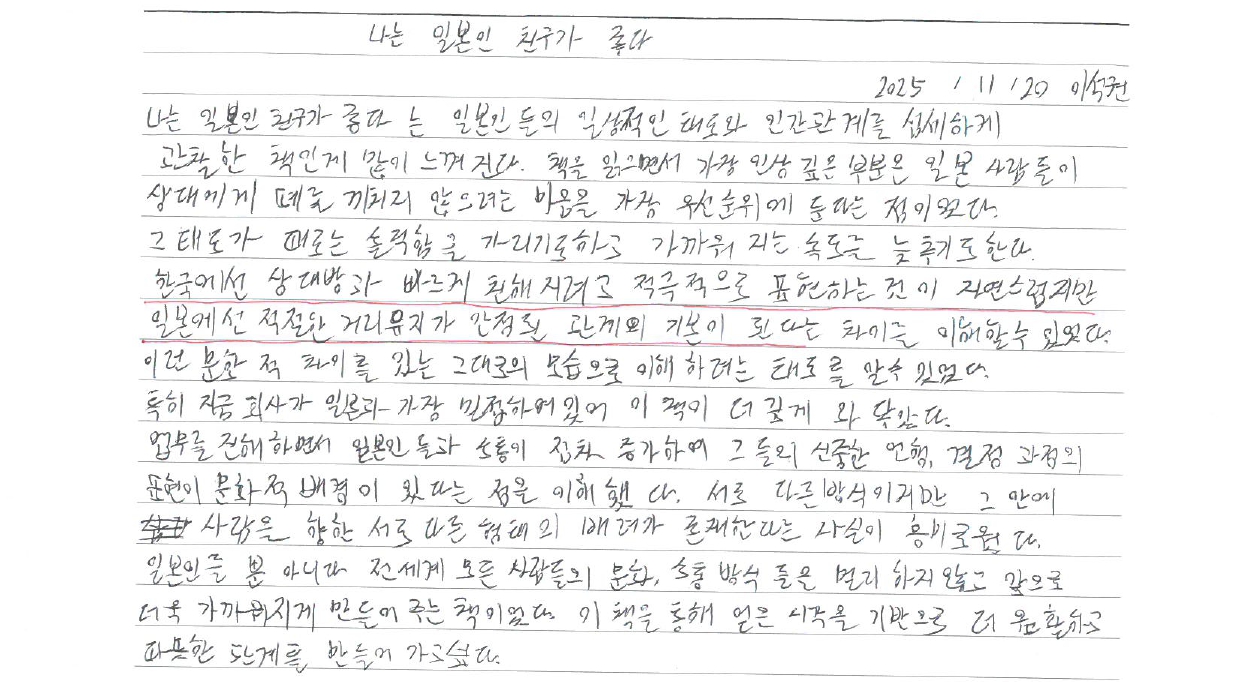 나는 일본인 친구가 좋다
2025 / 11 / 20 이석권
나는 일본인 친구가 좋다 는 일본인 들의 일상적인 태도와 인간관계를 섬세하게
관찰한 책인게 많이 느껴 진다. 책을 읽으면서 가장 인상 깊은 부분은 일본 사람들이
상대에게 폐를 끼치지 않으려는 마음을 가장 우선순위에 둔다는 점이였다.
그 태도가 때로는 솔직함을 가리기도하고 가까워 지는 속도를 늦추기도한다.
한국에선 상대방과 빠르게 친해지려고 적극적으로 표현하는 것이 자연스럽지만
일본에선 적절한 거리유지가 안정된 관계의 기본이 된다는 차이를 이해할수 있었다.
이런 문화 적 차이를 있는 그대로의 모습으로 이해 하려는 태도를 알수 있었다.
특히 지금 회사가 일본과 가장 밀접하여있어 이 책이 더 깊게 와 닿았다.
업무를 진행하면서 일본인 들과 소통이 점차 증가하며 그 들의 신중한 언행, 결정 과정의
표현이 문화적 배경이 있다는 점을 이해 했 다. 서로 다른 방식이지만 그 안에
사람을 향한 서로 다른 형태의 배려가 존재한다는 사실이 흥미로웠 다.
일본인을 뿐 아니라 전세계 모든 사람들의 문화, 소통 방식 들을 멀리 하지않고 앞으로
더욱 가까워지게 만들어 주는 책이었다. 이 책을 통해 얻은 시각을 기반으로 더 원활하고
따뜻한 관계를 만들어 가고싶다.